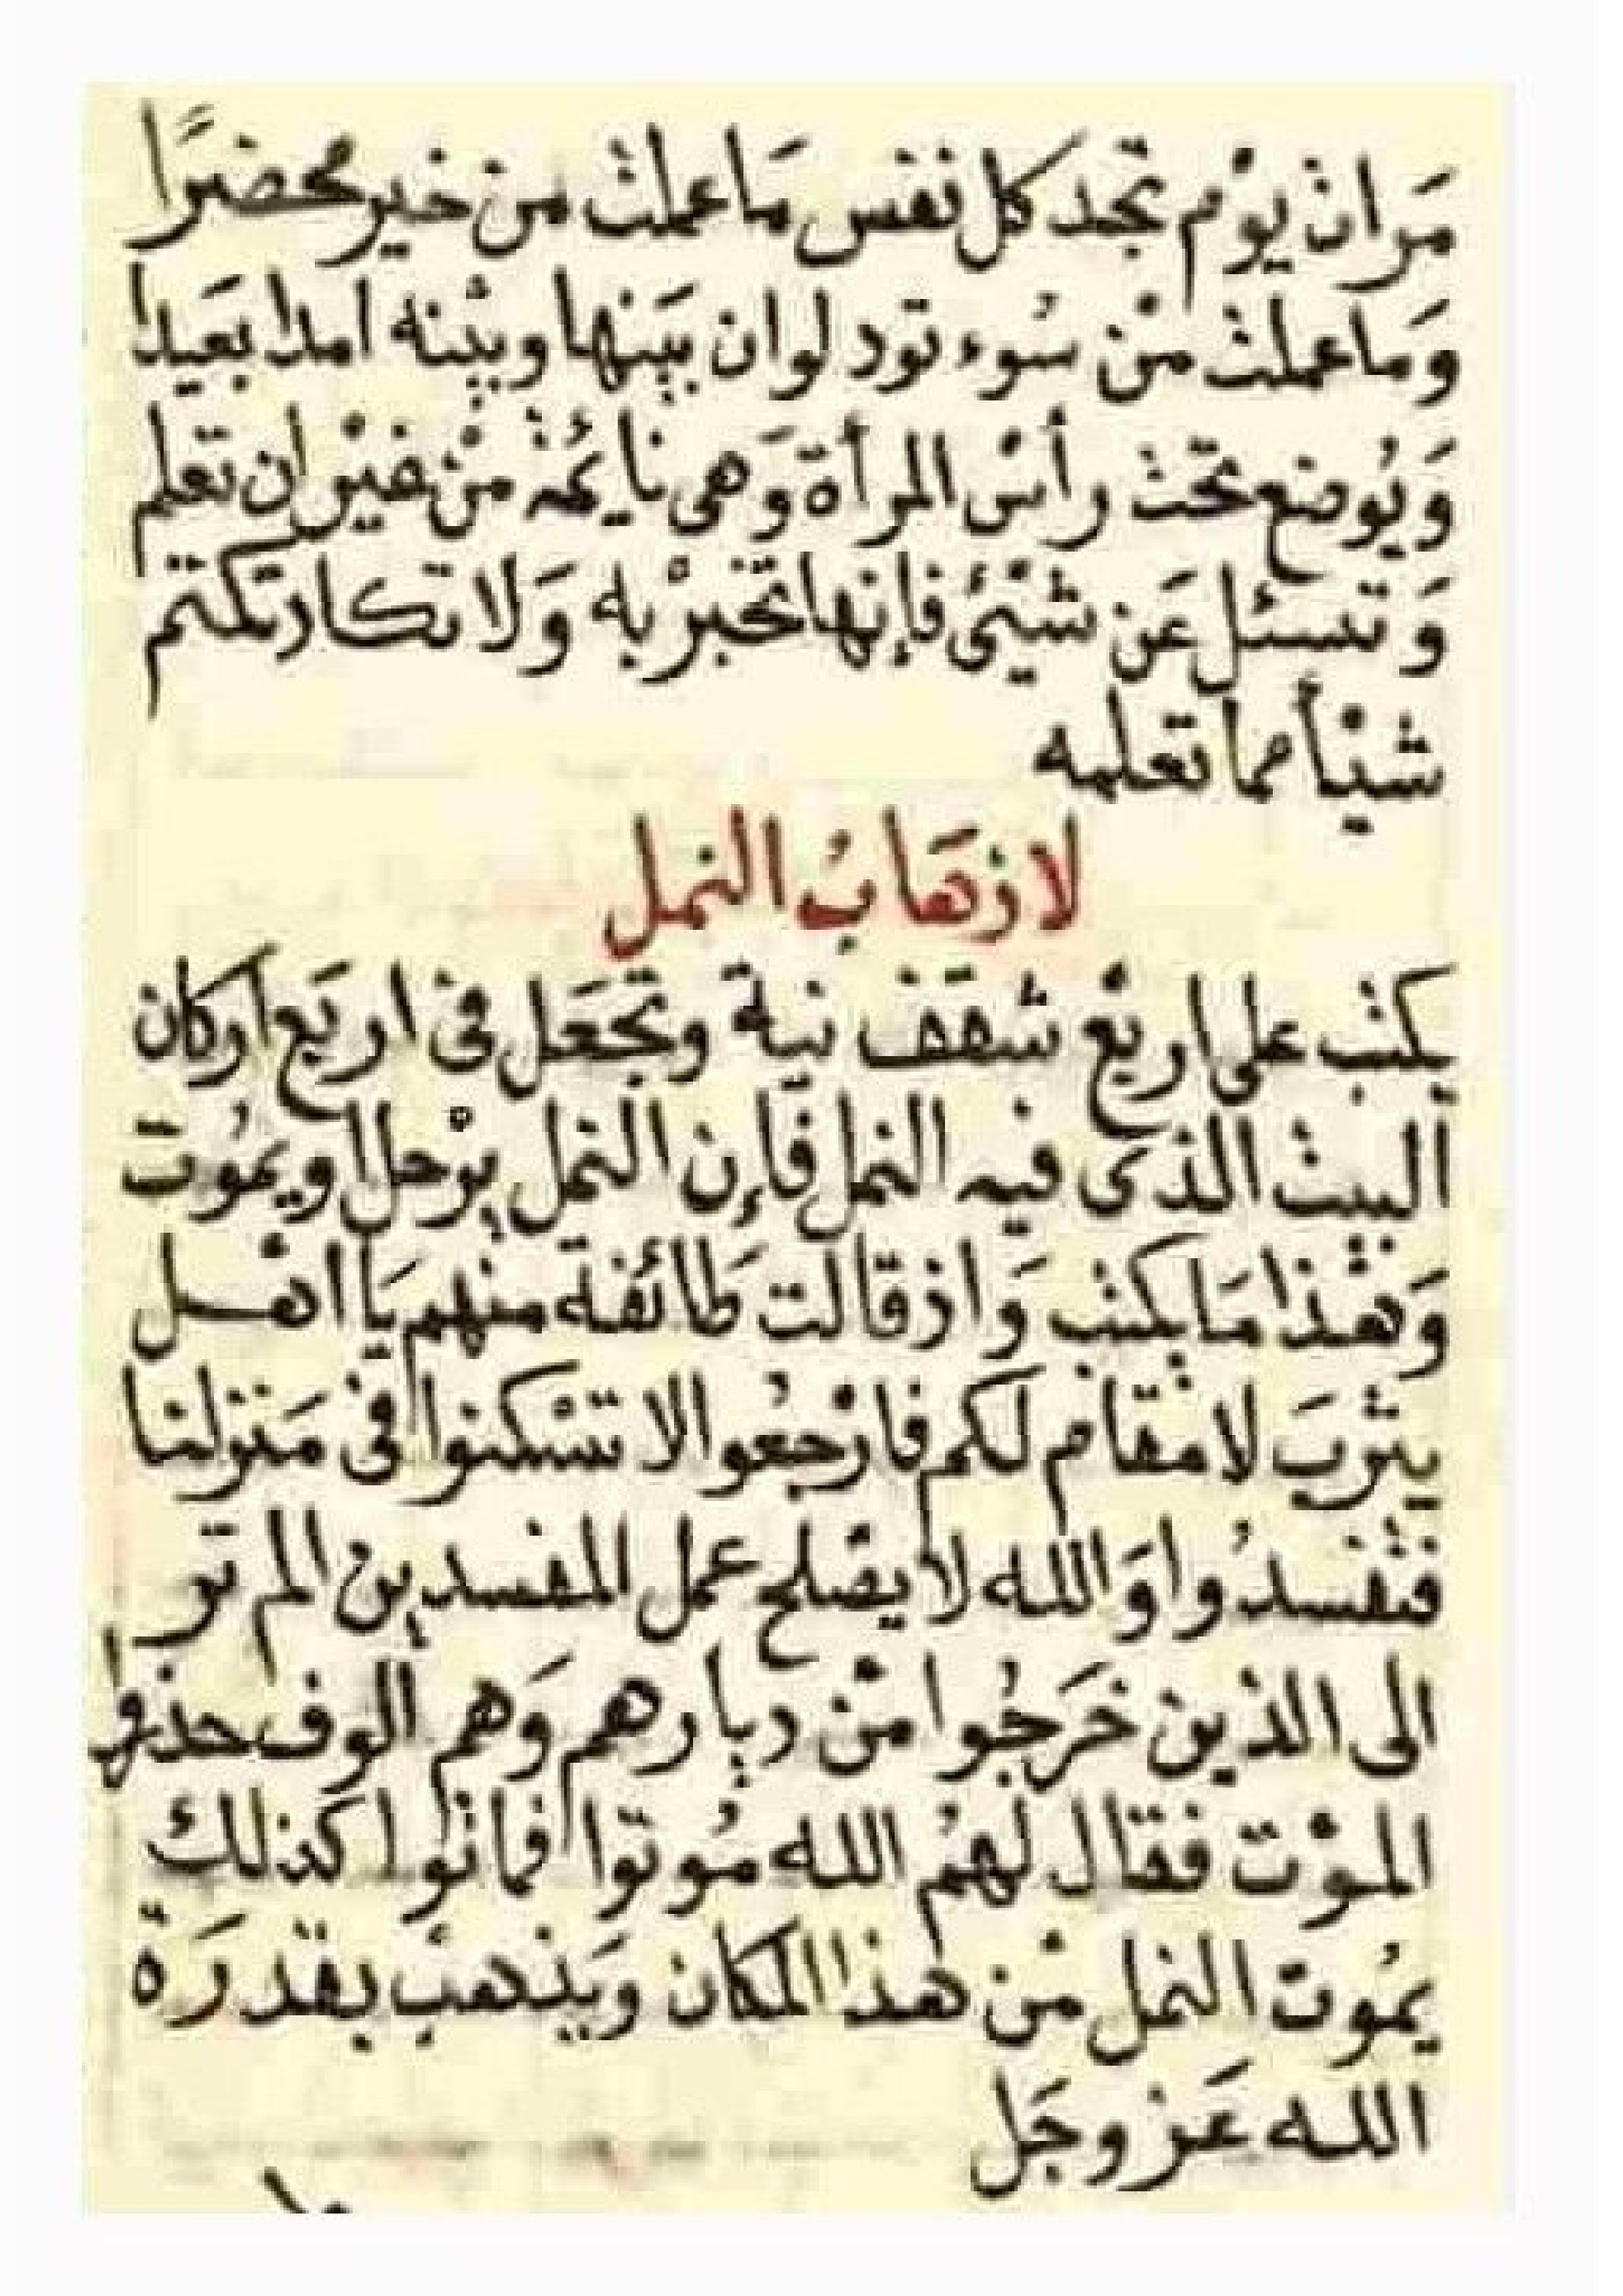 مَرانْ يوْم تجد كل نفس مَا عملتْ من خير محضرًا
وَمَا عملتْ منْ سُوء تود لوان بيَنها وبيْنه امدا بعَيدا
وَيُوضع تحتْ رأسْ المرأة وَهى نايُمْه منْ غيْر ان تعلم
وَتسئل عَن شيْئ فإنها تخبرْ به وَلا تكاد تكتم
شيْأ مما تعلمه
لاذهَابُ النمل
يكتبْ على اربعْ شقف نية وتجعَل فى اربَع اركان
البيتْ الذى فيه النمل فإن النمل يرْحل ويمُوت
وَهذا مَا يكتب وَاذ قالت طَائفة منهم يَا اهل
يثربَ لا مقام لكم فارْجعُوا لا تسْكنوا فى مَنزلنا
فتفسدُوا وَالله لا يصْلح عمل المفسدين الم تر
الى الذين خَرجُوا منْ ديارهم وَهم الوف حذر
الموْت فقال لهمُ الله مُوتوا فماتوا كذلك
يمُوت النمل منْ هذا المكان وَيذهبْ بقدرَة
الله عَز وجَل